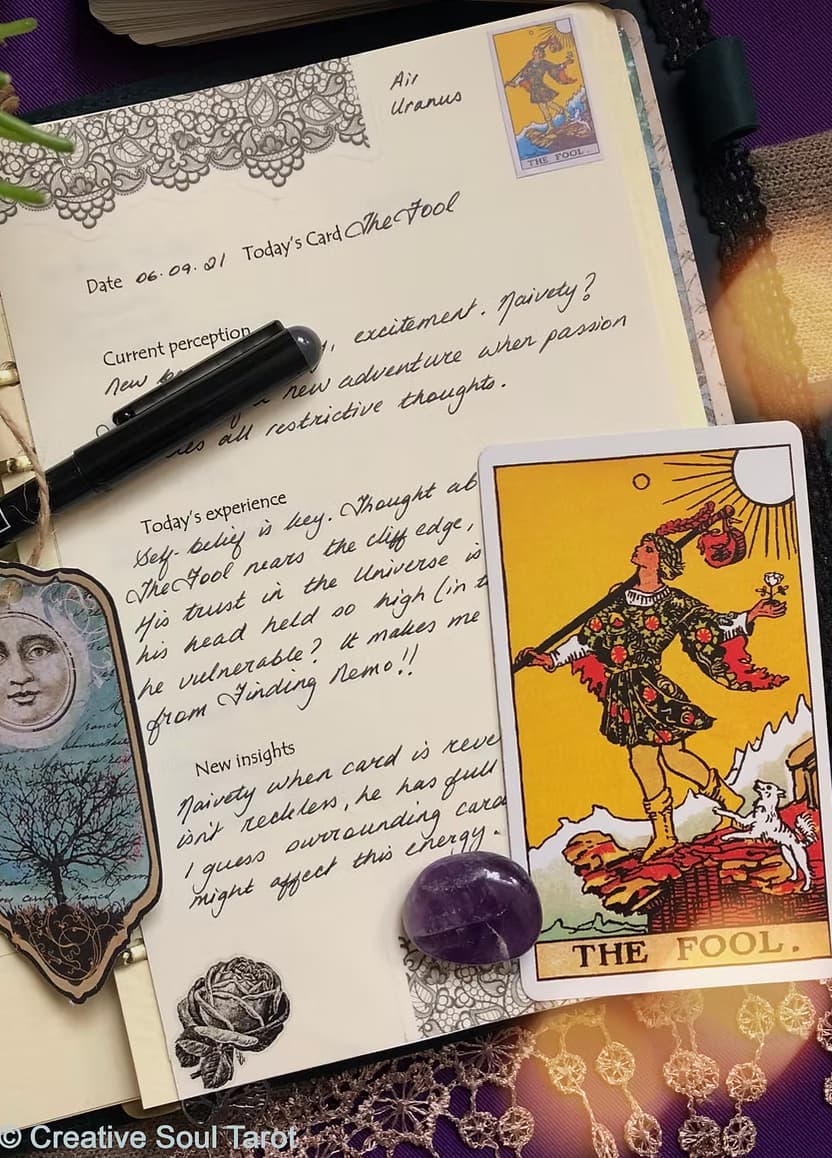 Air
Uranus
THE FOOL.
Date 06.09.21 Today's Card The Fool
Current perception
New excitement. Naivety?
new adventure when passion
all restrictive thoughts.
Today's experience
Self-belief is key. Thought ab
The Fool nears the cliff edge,
His trust in the Universe is
his head held so high (in t
he vulnerable? It makes me
from Finding Nemo!!
New insights
Naivety when card is reve
isn't reckless, he has full
I guess surrounding card
might affect this energy.
THE FOOL.
© Creative Soul Tarot